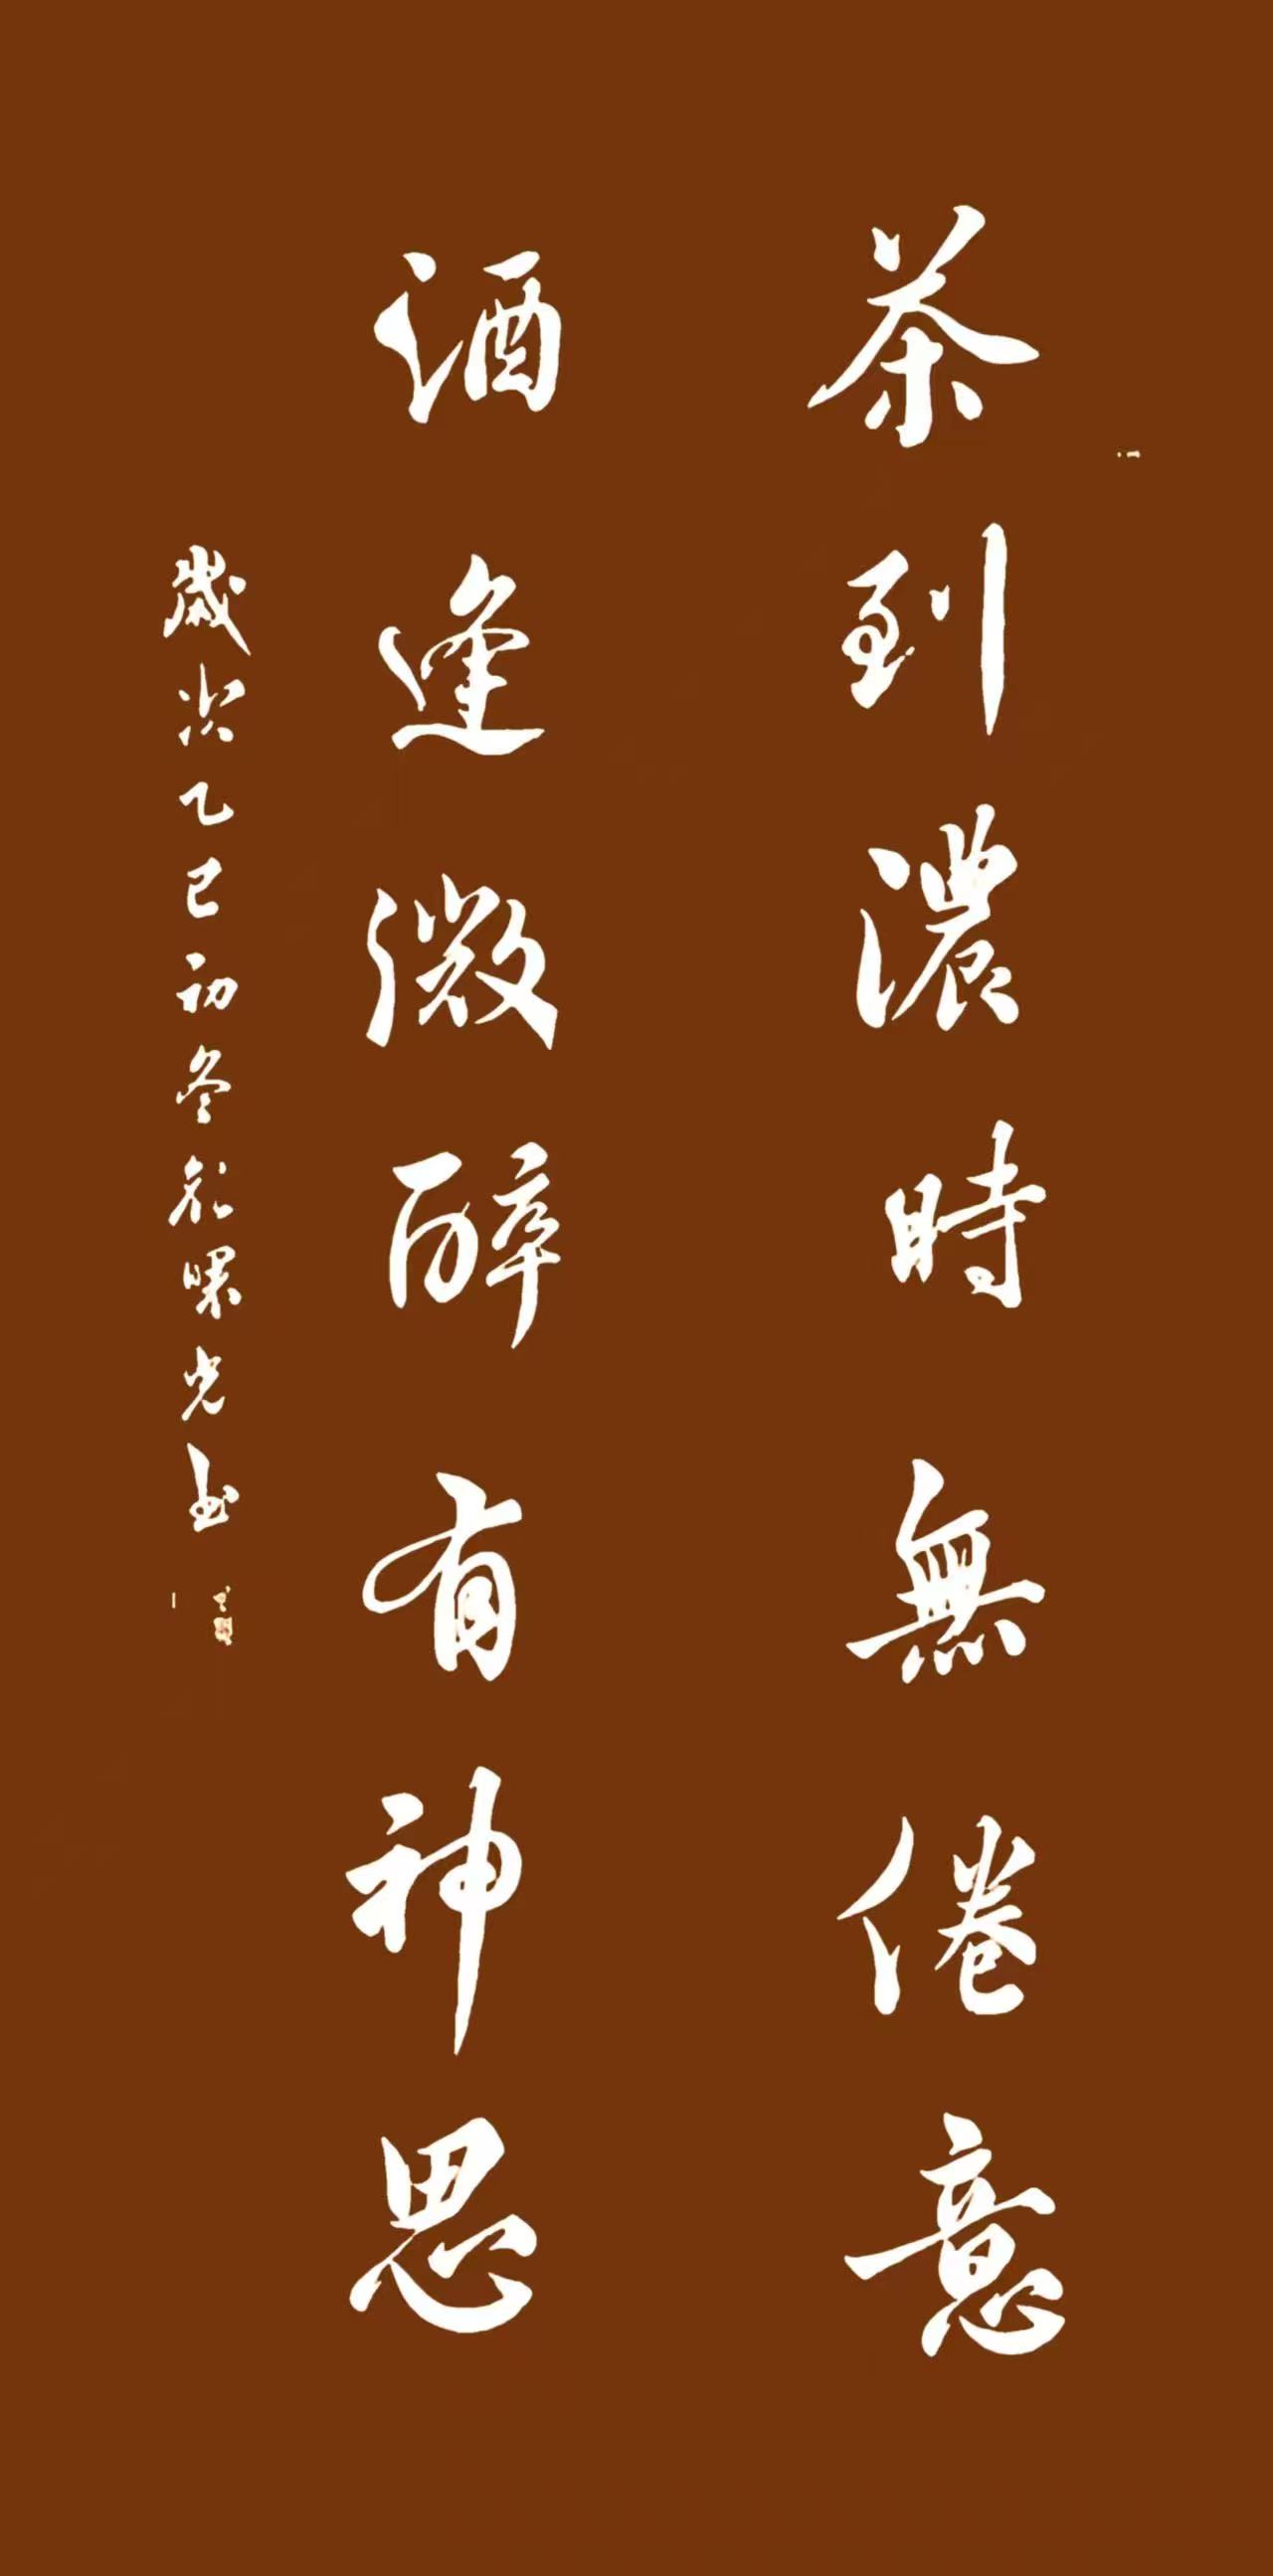 茶到濃時無倦意
酒逢微醉有神思
歲次乙巳初冬光書